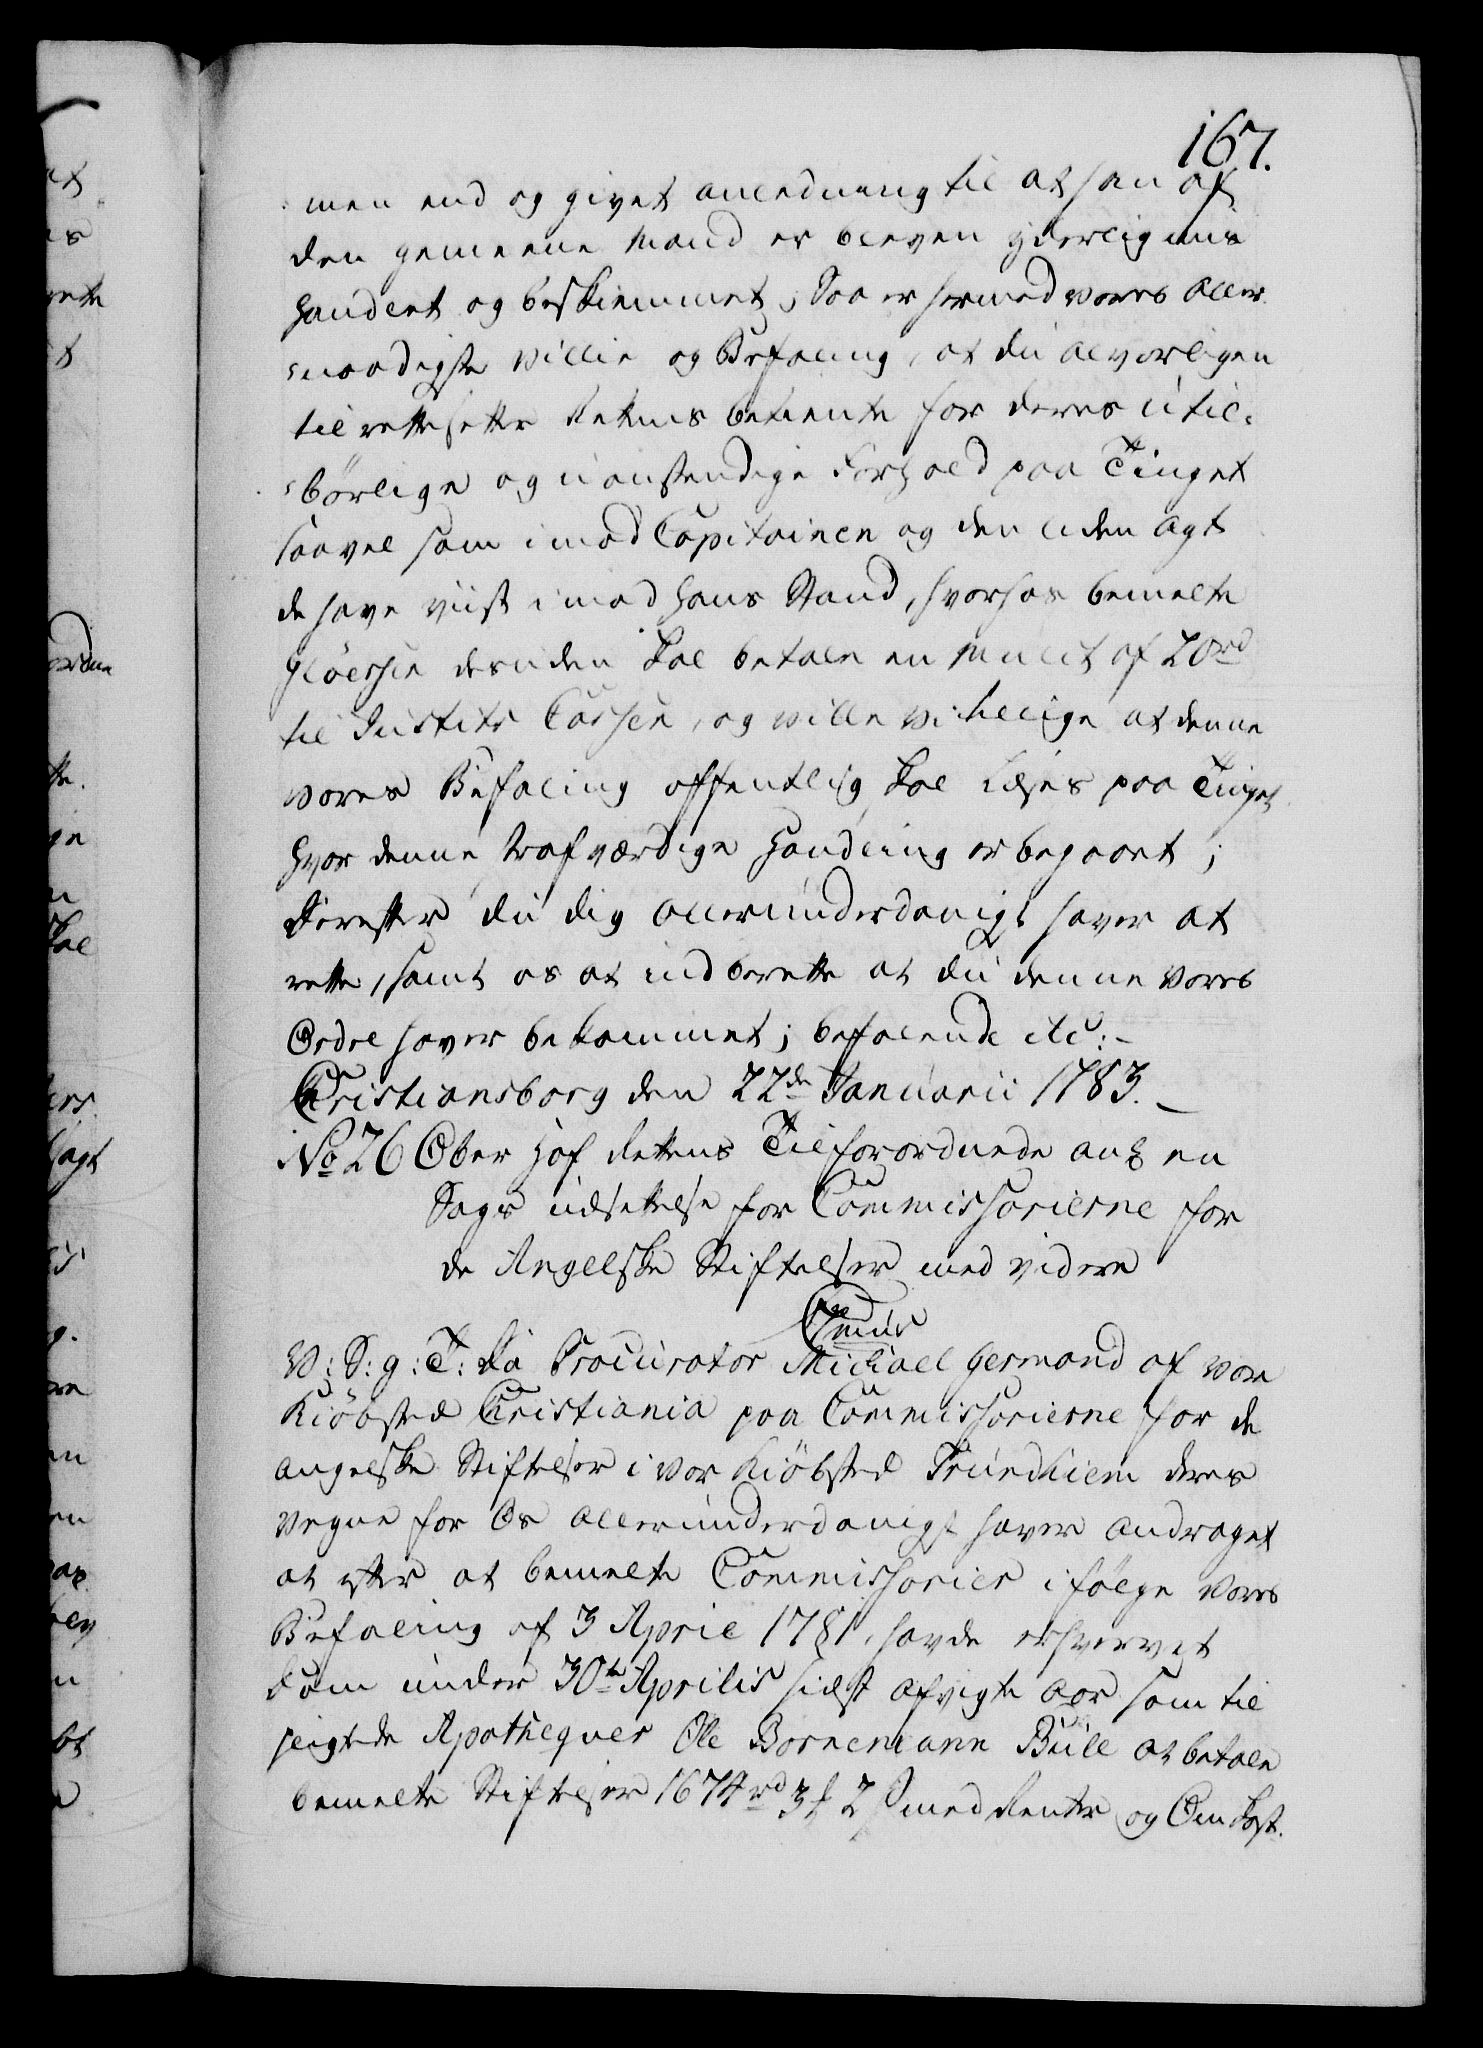 167.
men end og givet anledning til at han af
den gemeene Mand er bleven yderlig mis
handlet og beskiemmet; Saa er hermed vores Aller
naadigste villie og Befaling, at du alvorligen
tilrettesætter Rettens betiente for deres util-
børlige og uanstendige Forhold paa Tinget
saavel som imod Capitainen og den liden Agt
de have viist imod hans Stand, hvorhos bemelte
desuden skal betale en Mulct af 20 rd
til Justits Cassen, og ville vi tillige at denne
vores Befaling offentlig skal Læses paa Tinget
hvor denne strafværdige Handling er begaaet;
Derefter du dig allerunderdanigst haver at
rette, samt os at indberette at du denne vores
Ordre haver bekommet; befalende etc:-
Christiansborg den 22de Januarii 1783.
No 26 Ober Hof Rettens Tilforordnede ang en
Sags udsettelse for Commissarierne for
de Angelske Stiftelser med videre
V: S: g: T: Da Procurator Michael Germand af vor
Kiøbsted Christiania paa Commissarierne for de
Angelske Stiftelser i vor Kiøbsted Trundhiem deres
vegne for Os allerunderdanigst haver andraget
at efter at bemelte Commissarier ifølge vores
Befaling af 3 April 1781, havde erhvervet
Dom under 30te Aprilis sidst afvigte Aar som til
pligtede Apothequer Ole Bornemann Bull at betale
bemelte Stiftelser 1674 rd 3 ℔ 2 ß med Renter og Omkost.